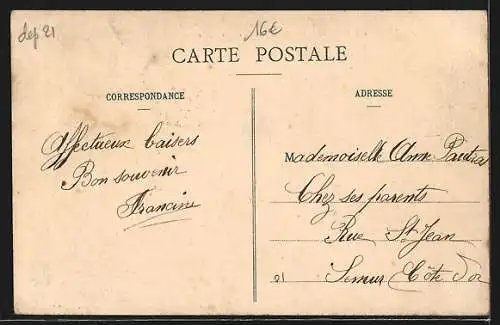 dep 21
16€
CARTE POSTALE
CORRESPONDANCE
ADRESSE
Affectueux baisers
Bon souvenir
Francine
Mademoiselle Anne
Chez ses parents
Rue St Jean
Semur Côte d'or